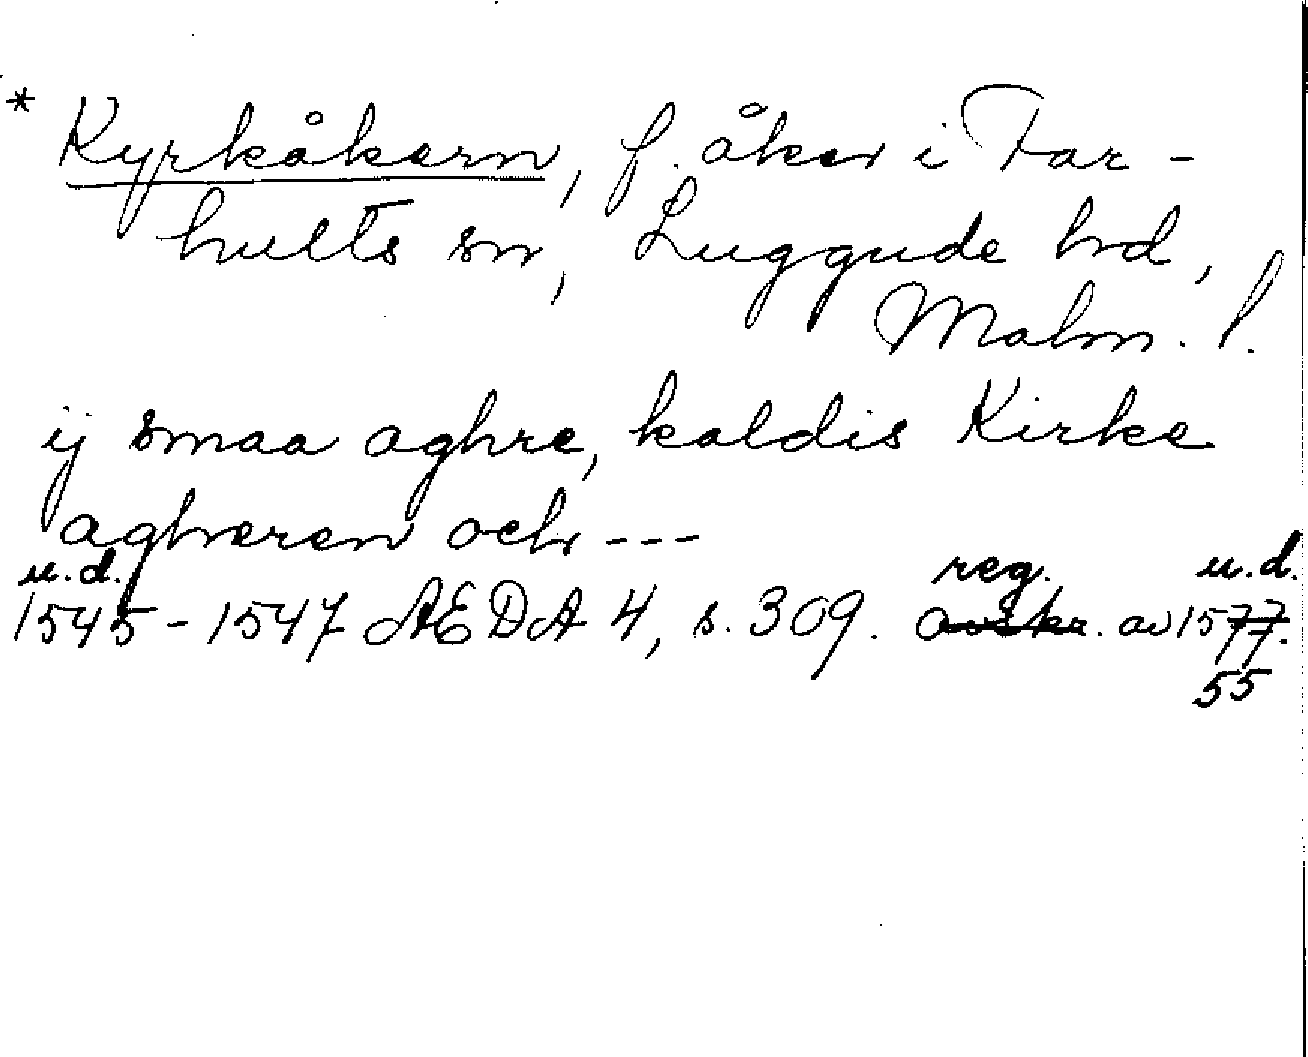 * Kyrkåkern, f. åker i Far-
hults sn, Luggude hd,
Malm. l.
ij smaa aghre, kaldis Kirke
aghreren och ---
u.d. reg. u.d.
1545-1547 AEDA 4, s. 309. avskr. av 1577.
55